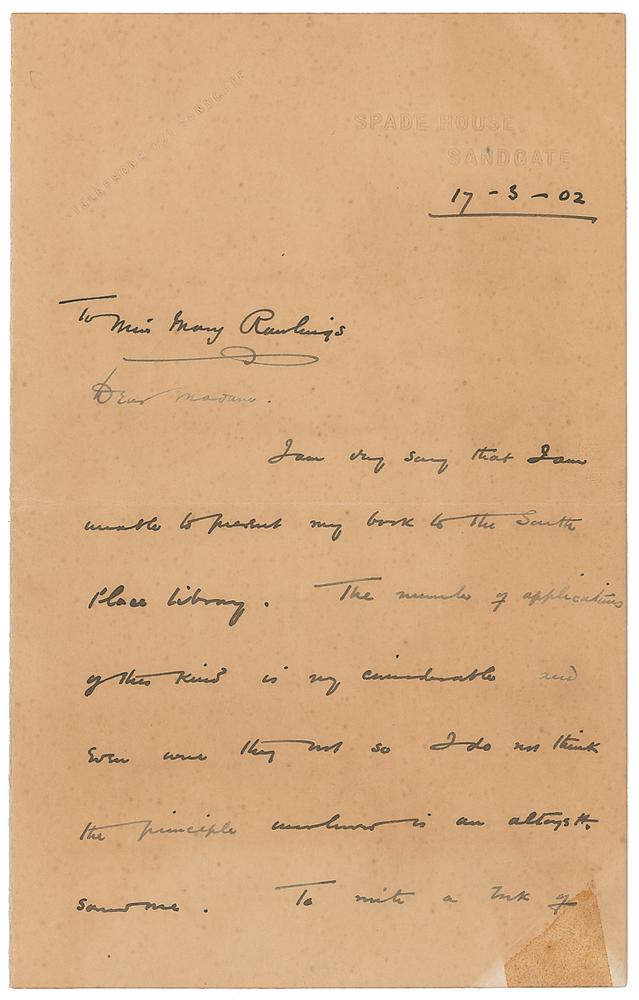 TELEPHONE SANDGATE
SPADE HOUSE
SANDGATE
17 - 3 - 02
To Miss Mary Rawlings
Dear Madam.
I am very sorry that I am
unable to present my book to the South
Place Library. The number of applications
of this kind is very considerable and
even were they not so I do not think
the principle involved is an altogether
sound one. To write a book of